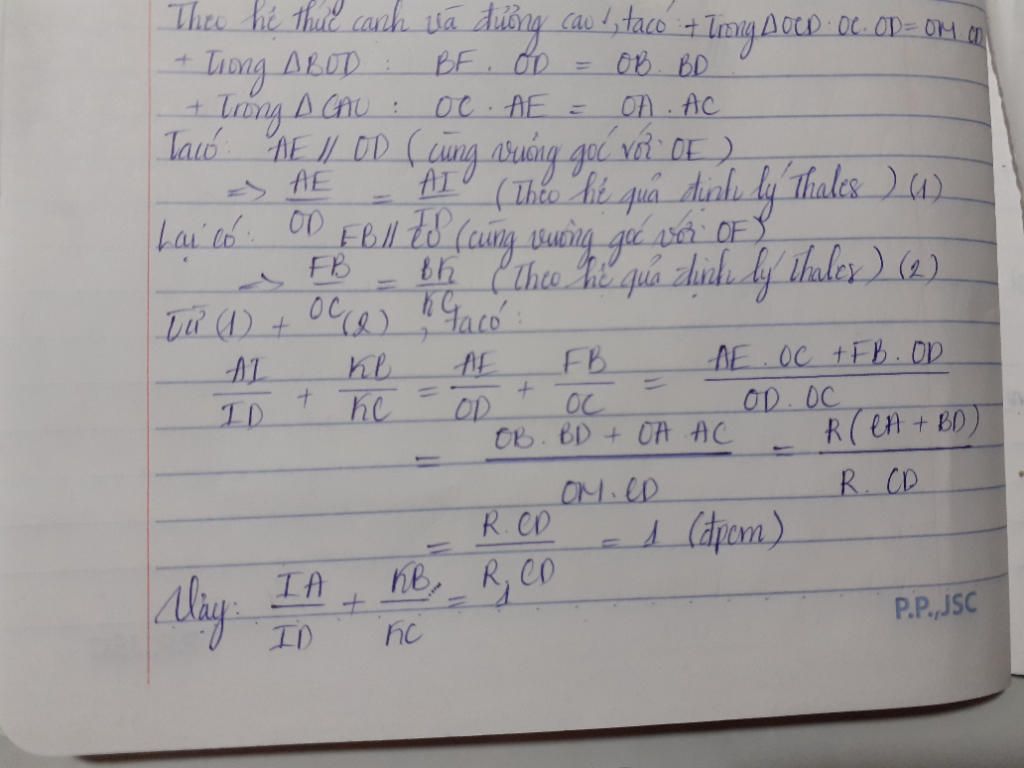 Theo hệ thức cạnh và đường cao, ta có: + Trong ΔOCD: OC.OD = OM.CD
+ Trong ΔBOD : BF . OD = OB . BD
+ Trong ΔCAO : OC . AE = OA . AC
Ta có: AE // OD ( cùng vuông góc với OE )
=> AE/OD = AI/ID (Theo hệ quả định lý Thales ) (1)
Lại có: FB // CO (cùng vuông góc với OF)
=> FB/OC = BK/KC (Theo hệ quả định lý Thales ) (2)
Từ (1) + (2) , ta có:
AI/ID + KB/KC = AE/OD + FB/OC = AE . OC + FB . OD/OD . OC
= OB . BD + OA . AC/OM . CD = R(CA + BD)/R . CD
= R. CD/R. CD = 1 (đpcm)
Vậy: IA/ID + KB/KC = 1
P.P.,JSC